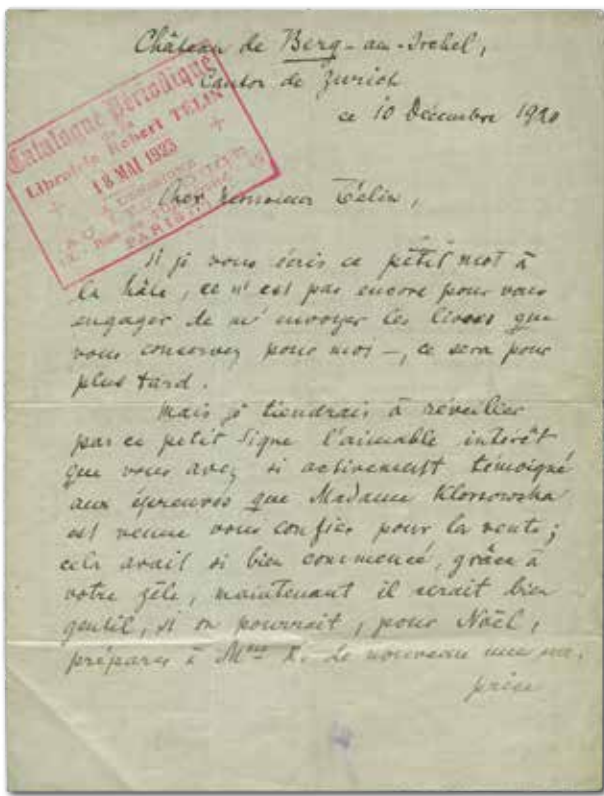 Château de Berg-am-Irchel,
Canton de Zurich
ce 10 Décembre 1920
Catalogue Périodique
de la
Librairie Robert TÉLIN
18 MAI 1925
PARIS
Cher Monsieur Télin,
Si je vous écris ce petit mot à
la hâte, ce n'est pas encore pour vous
engager de m'envoyer les livres que
vous conservez pour moi –, ce sera pour
plus tard.
Mais je tiendrais à réveiller
par ce petit signe l'aimable intérêt
que vous avez si activement témoigné
aux épreuves que Madame Klossowska
est venue vous confier pour la vente;
cela avait si bien commencé, grâce à
votre zèle, maintenant il serait bien
gentil, si on pourrait, pour Noël,
préparer à Mme K. de nouveau une sur-
prise